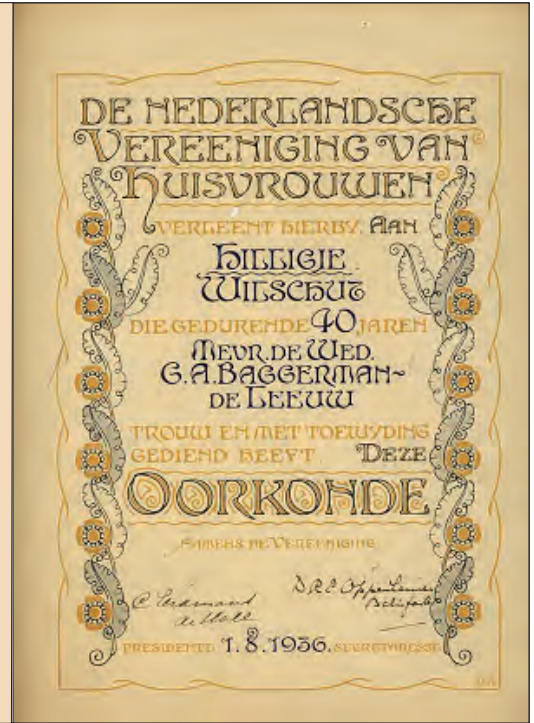 DE NEDERLANDSCHE
VEREENIGING VAN
HUISVROUWEN
VERLEENT HIERBY. AAN
HILLIGJE
WILSCHUT
DIE GEDURENDE 40 JAREN
MEVR. DE WED.
G.A. BAGGERMAN~
DE LEEUW
TROUW EN MET TOEWYDING
GEDIEND HEEFT. DEZE
OORKONDE
NAMENS DE VEREENIGING
PRESIDENTE 1.8.1936. SECRETARESSE